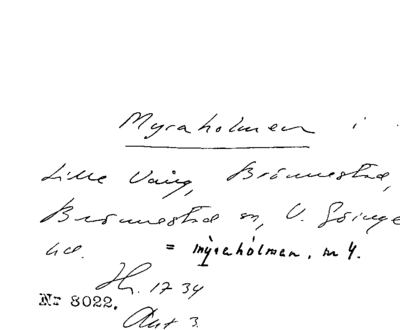 Myraholmen i
Lille Vång, Brönnestad,
Brönnestad sn, V. Göinge
hd. = myraholmen, m 4.
Hs. 1734
Nr 8022.
Akt 3.